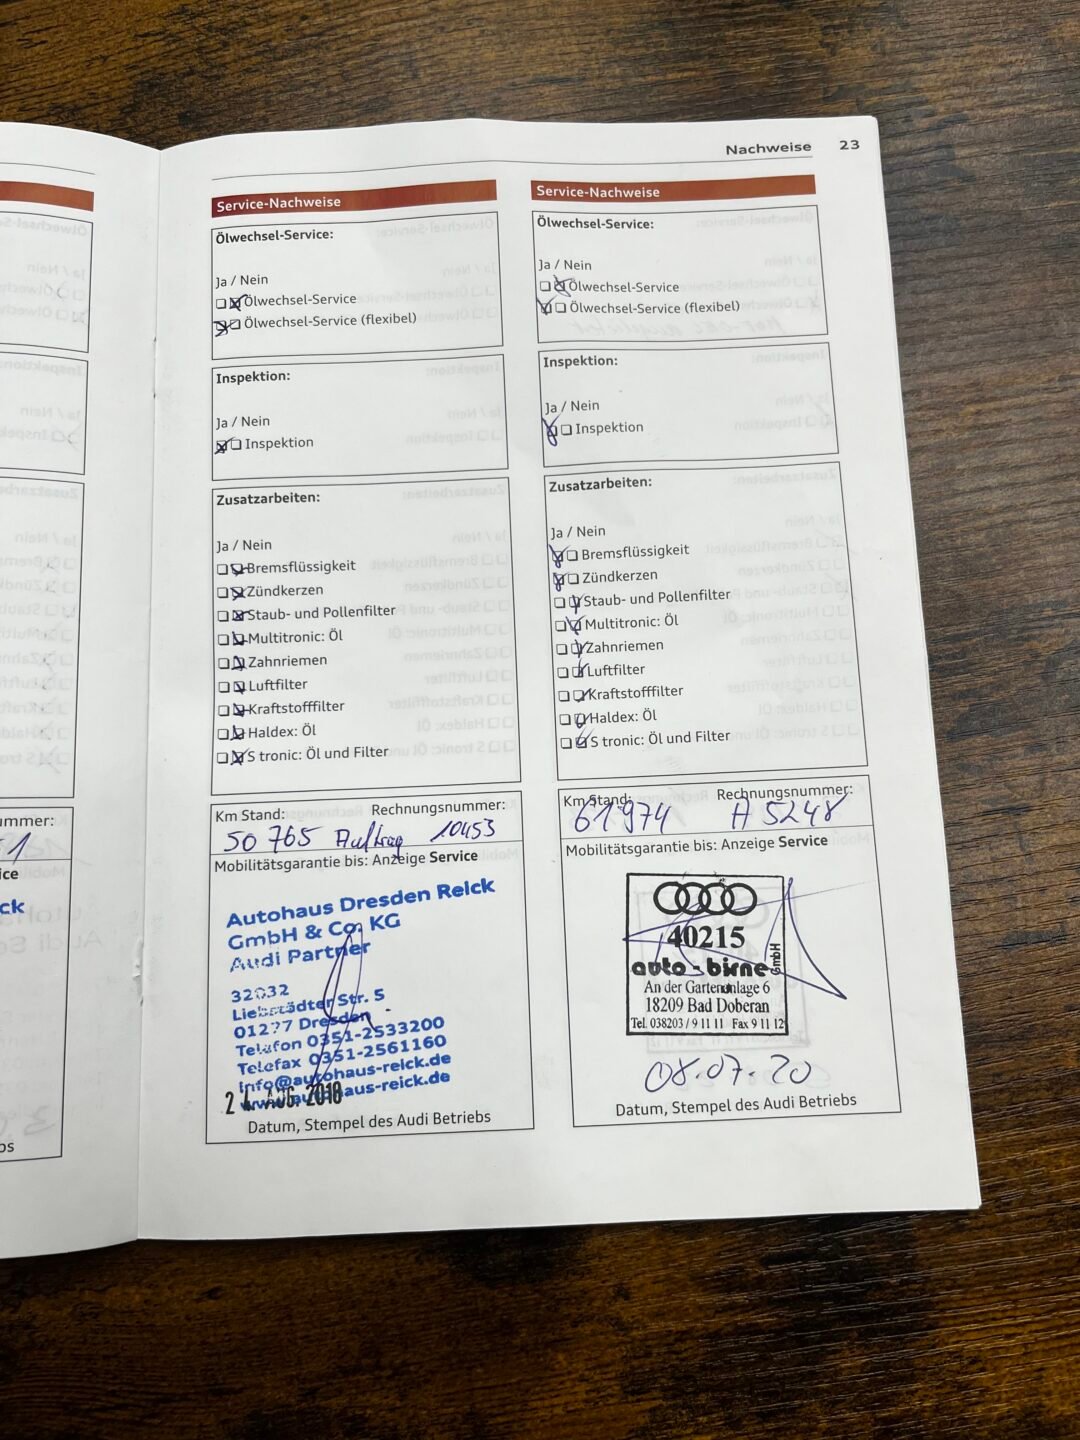 Nachweise 23
Service-Nachweise
Ölwechsel-Service:
Ja / Nein
Ölwechsel-Service
Ölwechsel-Service (flexibel)
Inspektion:
Ja / Nein
Inspektion
Zusatzarbeiten:
Ja / Nein
Bremsflüssigkeit
Zündkerzen
Staub- und Pollenfilter
Multitronic: Öl
Zahnriemen
Luftfilter
Kraftstofffilter
Haldex: Öl
S tronic: Öl und Filter
Km Stand: Rechnungsnummer:
50 765 Auftrag 10453
Mobilitätsgarantie bis: Anzeige Service
Autohaus Dresden Reick
GmbH & Co. KG
Audi Partner
32032
Liebstädter Str. 5
01277 Dresden
Telefon 0351-2533200
Telefax 0351-2561160
info@autohaus-reick.de
www.autohaus-reick.de
AUG. 2018
Datum, Stempel des Audi Betriebs
Service-Nachweise
Ölwechsel-Service:
Ja / Nein
Ölwechsel-Service
Ölwechsel-Service (flexibel)
Inspektion:
Ja / Nein
Inspektion
Zusatzarbeiten:
Ja / Nein
Bremsflüssigkeit
Zündkerzen
Staub- und Pollenfilter
Multitronic: Öl
Zahnriemen
Luftfilter
Kraftstofffilter
Haldex: Öl
S tronic: Öl und Filter
Km Stand: Rechnungsnummer:
61974 A 5248
Mobilitätsgarantie bis: Anzeige Service
40215
auto-birne GmbH
An der Gartenanlage 6
18209 Bad Doberan
Tel. 038203 / 9 11 11 Fax 9 11 12
08.07.20
Datum, Stempel des Audi Betriebs